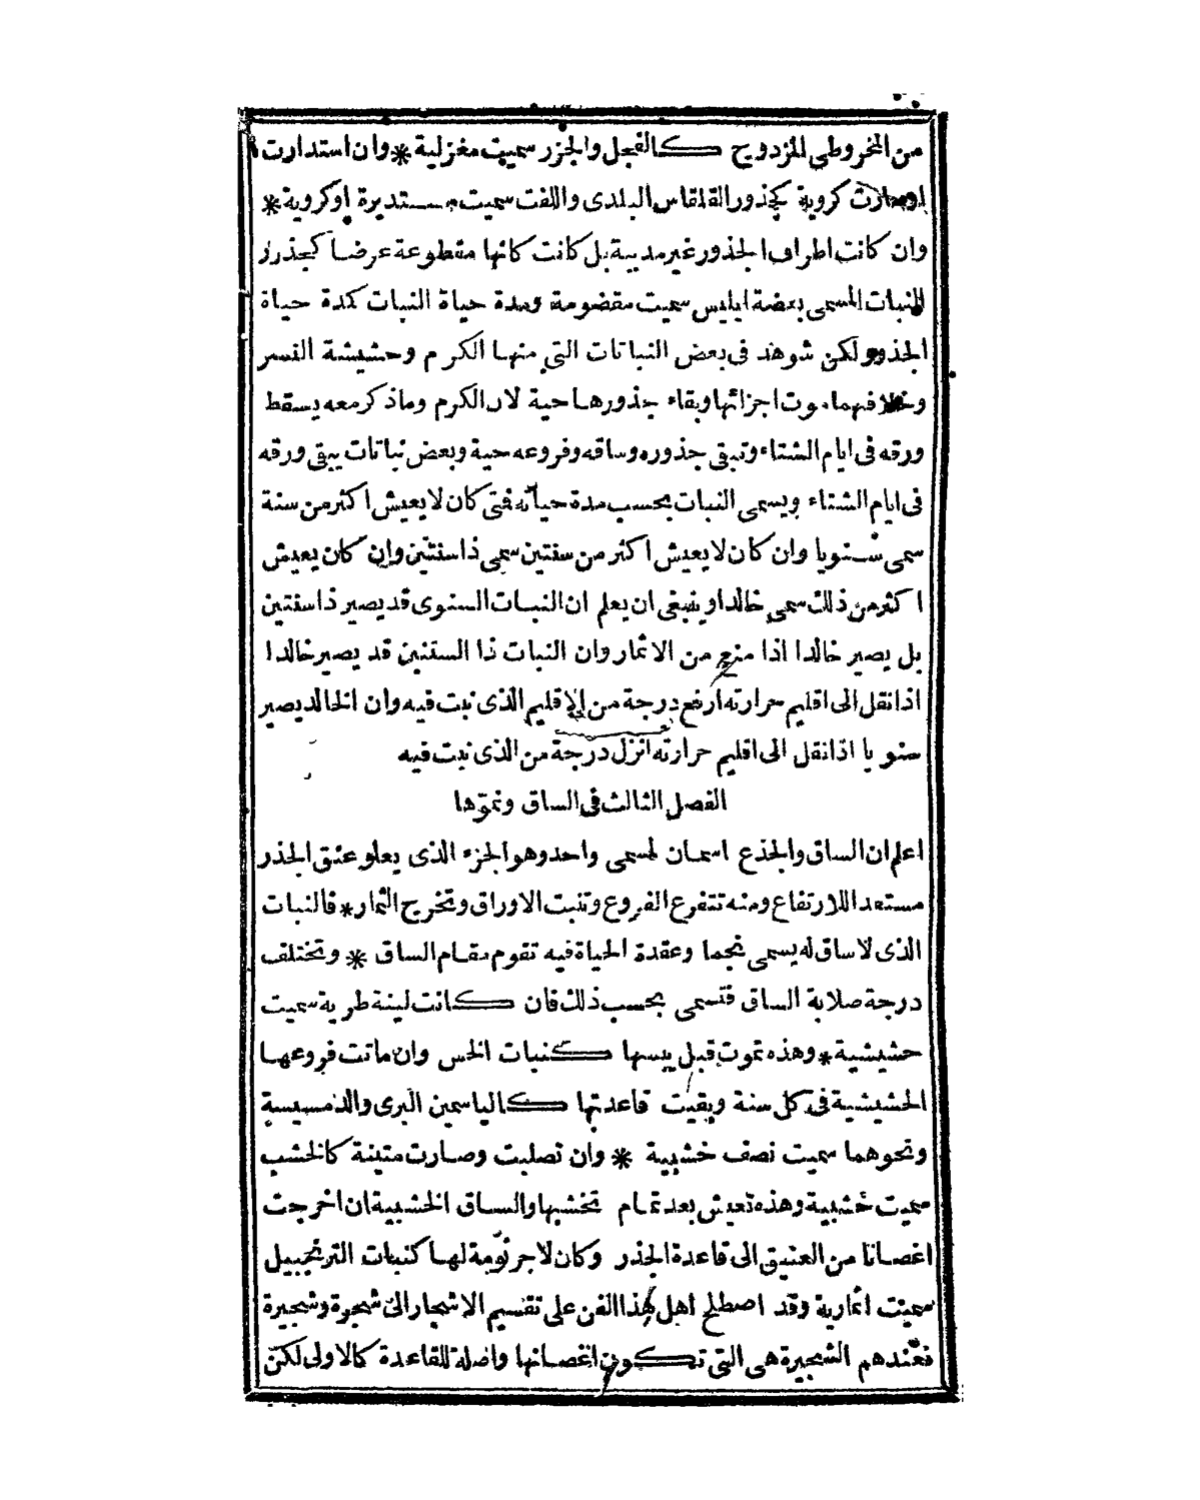 من المخروطى المزدوج كالفجل والجزر سميت مغزلية * وان استدارت
اوصارت كروية كجذور القلقاس البلدى واللفت سميت مستديرة اوكروية *
وان كانت اطراف الجذور غير مدببة بل كانت كانها مقطوعة عرضا كجذور
النبات المسمى بعضة ابليس سميت مقضومة ومدة حياة النبات كمدة حياة
الجذور لكن شوهد فى بعض النباتات التى منها الكرم وحشيشة النسر
وخلافهما موت اجزائها وبقاء جذورها حية لان الكرم وماذكر معه يسقط
ورقه فى ايام الشتاء وتبقى جذوره وساقه وفروعه حية وبعض نباتات يبقى ورقه
فى ايام الشتاء ويسمى النبات بحسب مدة حياته فتى كان لا يعيش اكثر من سنة
سمى سنويا وان كان لا يعيش اكثر من سنتين سمى ذا سنتين وان كان يعيش
اكثر من ذلك سمى خالدا وينبغى ان يعلم ان النبات السنوى قد يصير ذا سنتين
بل يصير خالدا اذا منع من الاثمار وان النبات ذا السنتين قد يصير خالدا
اذا نقل الى اقليم حرارته ارفع درجة من الاقليم الذى نبت فيه وان الخالد يصير
سنويا اذا نقل الى اقليم حرارته انزل درجة من الذى نبت فيه
الفصل الثالث فى الساق ونموّها
اعلم ان الساق والجذع اسمان لمسمى واحد وهو الجزء الذى يعلو عنق الجذر
مستعدا للارتفاع ومنه تتفرع الفروع وتنبت الاوراق وتخرج الثمار * فالنبات
الذى لا ساق له يسمى نجما وعقدة الحياة فيه تقوم مقام الساق * وتختلف
درجة صلابة الساق فتسمى بحسب ذلك فان كانت لينة طرية سميت
حشيشية * وهذه تموت قبل يبسها كنبات الخس وان ماتت فروعها
الحشيشية فى كل سنة وبقيت قاعدتها كالياسمين البرى والدمسيسة
ونحوهما سميت نصف خشبية * وان تصلبت وصارت متينة كالخشب
سميت خشبية وهذه تعيش بعد تمام تخشبها والساق الخشبية ان اخرجت
اغصانا من العنيق الى قاعدة الجذر وكان لا جرثومة لها كنبات الترنجبيل
سميت اثمارية وقد اصطلح اهل هذا الفن على تقسيم الاشجار الى شجرة وشجيرة
فعندهم الشجيرة هى التى تكون اغصانها واصلة للقاعدة كالاولى لكن